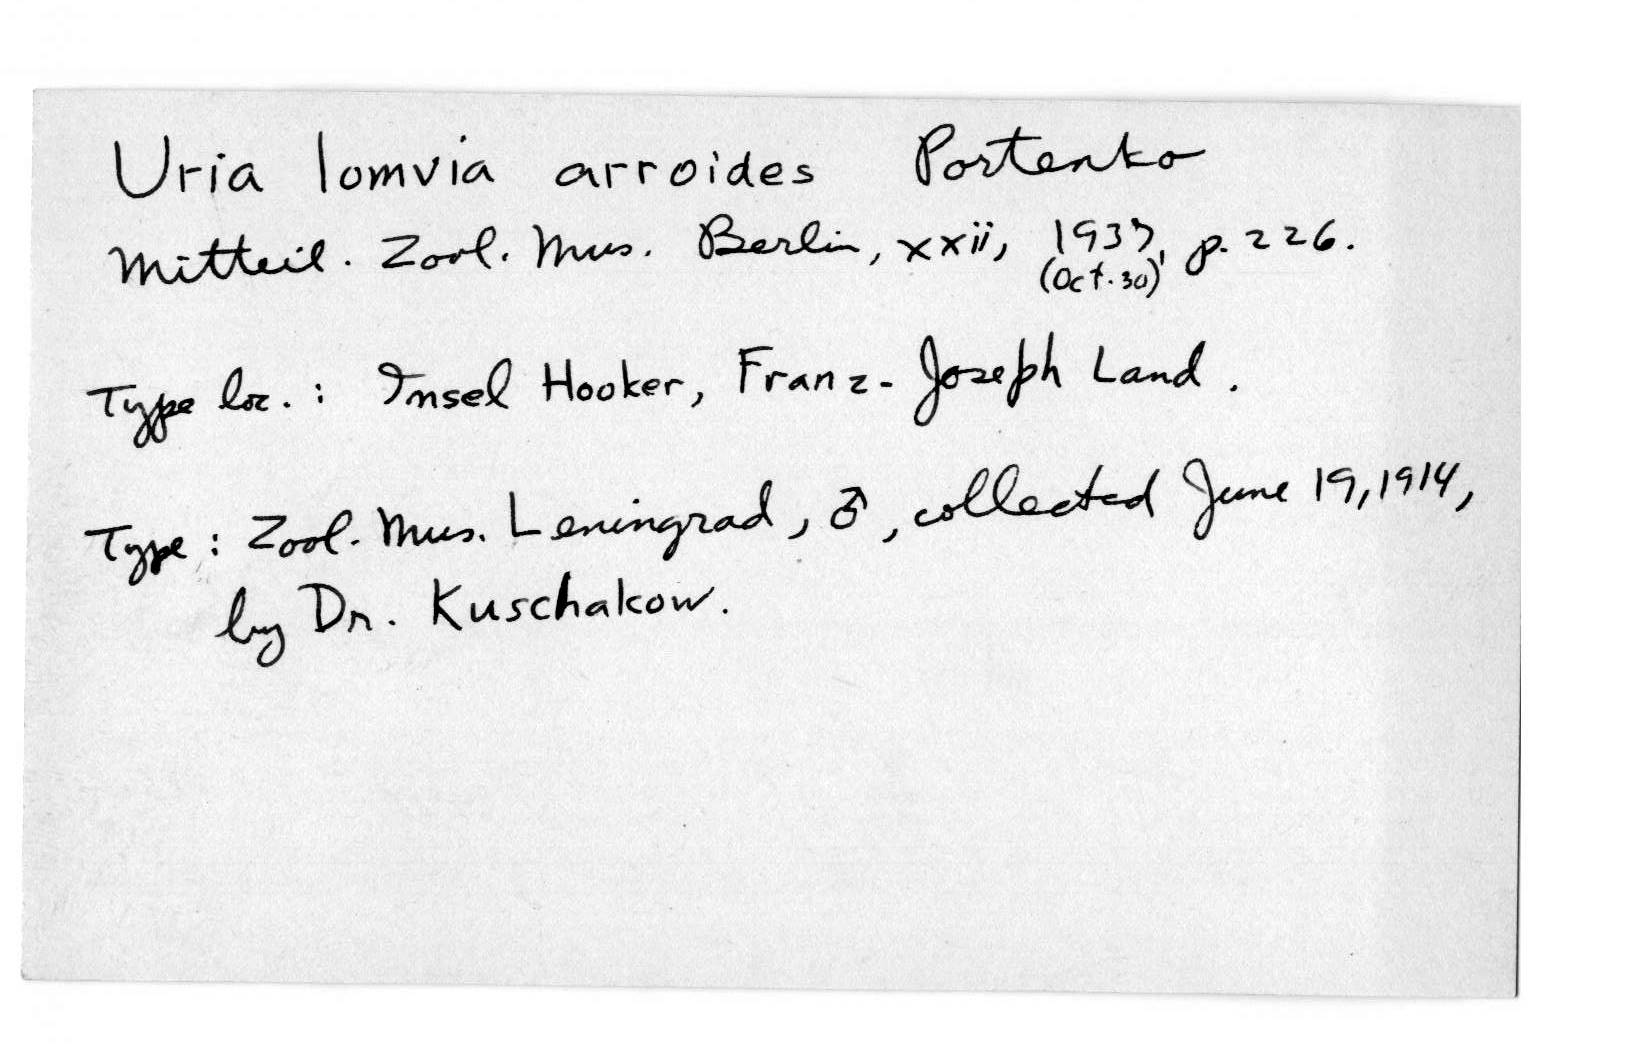 Uria lomvia arroides Portenko
Mitteil. Zool. Mus. Berlin, xxii, 1937, p. 226.
(Oct. 30)
Type loc. : Insel Hooker, Franz-Joseph Land.
Type : Zool. Mus. Leningrad, ♂, collected June 19, 1914,
by Dr. Kuschakow.